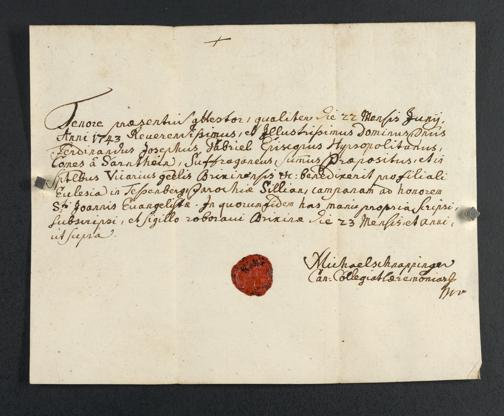 Tenore præsentium attestor, qualiter die 22 Mensis Junij,
Anni 1743 Reverendissimus, et Illustrissimus Dominus Dnus
Ferdinandus Josephus Gabriel Episcopus Chrysopolitanus,
Comes à Sarnthein, Suffraganeus, Sumus Præpositus, et in
Spitlbus Vicarius gñlis Brixinensis &c: benedixerit pro filiali
Eclesia in Tessenberg Parochiæ Sillian, campanam ad honorem
Sti Joannis Evangelistæ. In quorum fidem has manu propria scripsi,
subscripsi, et sigillo roboravi Brixinæ die 23 Mensis, et anni,
ut supra
Michael schnappinger
Can: Collegiat: Ceremoniar9